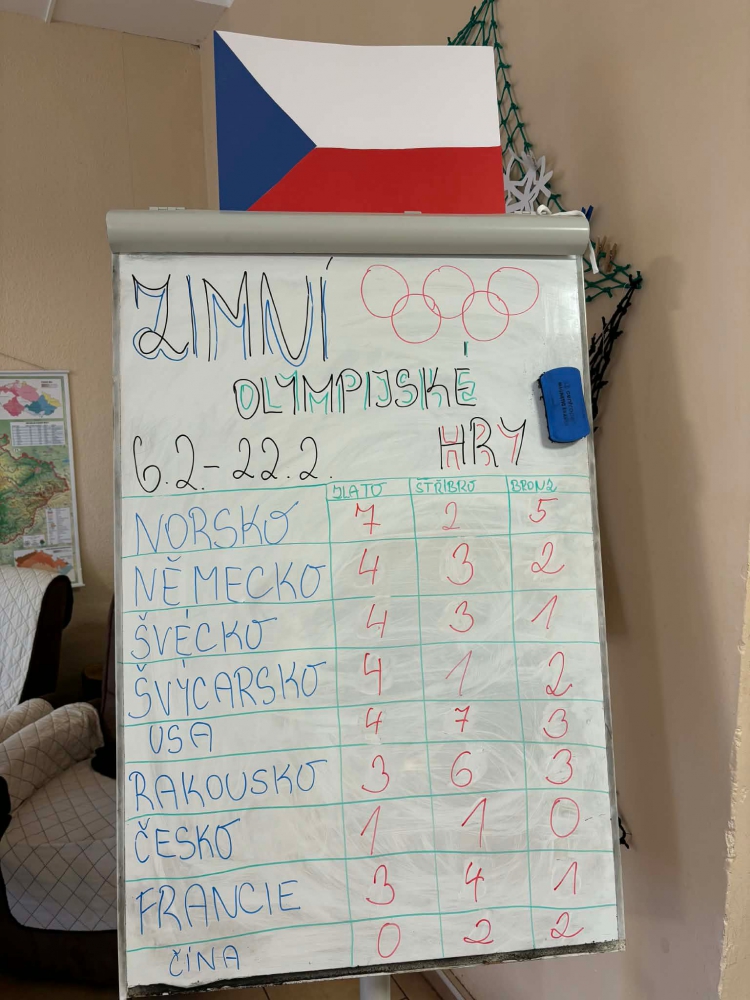 ZIMNÍ
OLYMPIJSKÉ
6.2.-22.2. HRY
ZLATO STŘÍBRO BRONZ
NORSKO 7 2 5
NĚMECKO 4 3 2
ŠVÉCKO 4 3 1
ŠVÝCARSKO 4 1 2
USA 4 7 3
RAKOUSKO 3 6 3
ČESKO 1 1 0
FRANCIE 3 4 1
ČÍNA 0 2 2